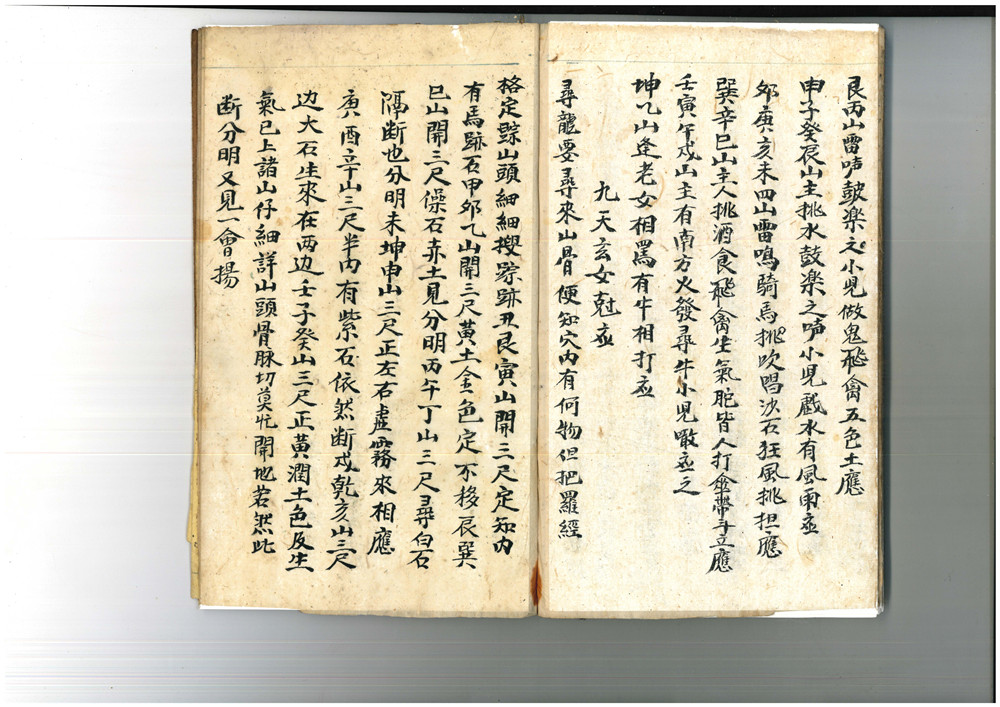 艮丙山雷声鼓楽之小児做鬼飛禽五色土應
申子癸辰山主挑水鼓楽之声小児戯水有風雨应
夘庚亥未四山雷鳴騎馬挑吹唱沙石狂風挑担應
巽辛巳山主人挑酒食飛禽生氣跎皆人打傘帶斗立應
壬寅午戍山主有南方火發尋牛小児散应之
坤乙山逢老女相罵有牛相打应
九天玄女尅应
尋龍要尋來山骨便知穴内有何物但把羅經
格定踪山頭細細搜踪跡丑艮寅山開三尺定知内
有馬跡石甲夘乙山開三尺黃土金色定不移辰巽
巳山開三尺傑石赤土見分明丙午丁山三尺尋白石
隔断也分明未坤申山三尺正左右虛霧來相應
庚酉辛山三尺半内有紫石依然断戍乾亥山三尺
边大石生來在两边壬子癸山三尺正黃潤土色及生
氣已上諸山仔細詳山頭骨脉切莫忙開地若然此
断分明又見一會揚